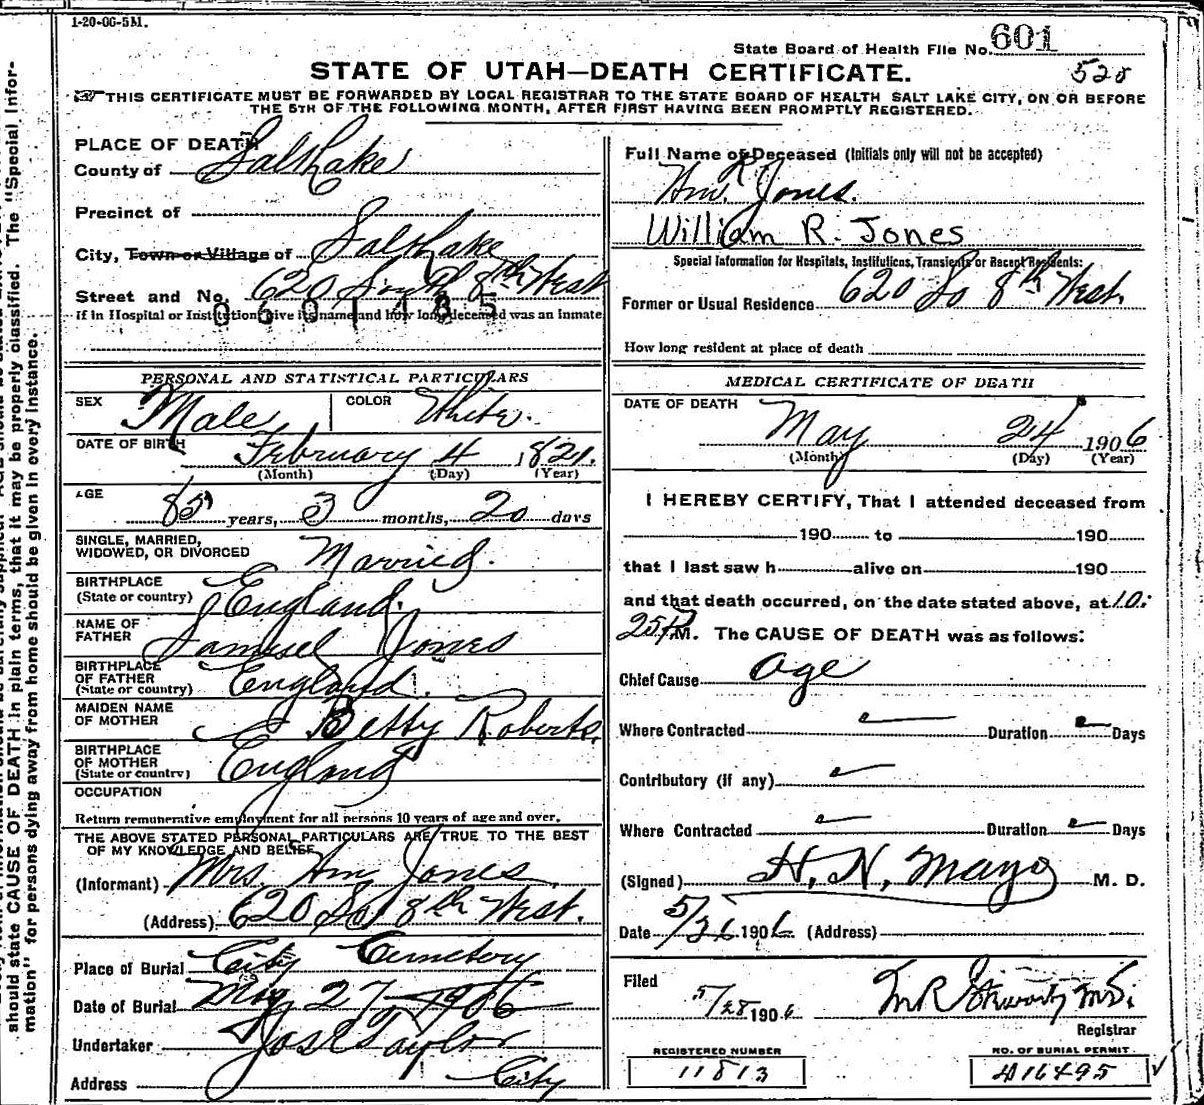 1-20-06-5M.
State Board of Health File No. 601
STATE OF UTAH—DEATH CERTIFICATE. 528
THIS CERTIFICATE MUST BE FORWARDED BY LOCAL REGISTRAR TO THE STATE BOARD OF HEALTH SALT LAKE CITY, ON OR BEFORE
THE 5TH OF THE FOLLOWING MONTH, AFTER FIRST HAVING BEEN PROMPTLY REGISTERED.
PLACE OF DEATH
County of Salt Lake
Precinct of
City, Town or Village of Salt Lake
Street and No. 620 South 8th West
0601185
If in Hospital or Institution give its name and how long deceased was an inmate
PERSONAL AND STATISTICAL PARTICULARS
SEX Male COLOR White.
DATE OF BIRTH February 4 1821.
(Month) (Day) (Year)
AGE 85 years, 3 months, 20 days
SINGLE, MARRIED,
WIDOWED, OR DIVORCED Married.
BIRTHPLACE
(State or country) England.
NAME OF
FATHER Samuel Jones
BIRTHPLACE
OF FATHER
(State or country) England.
MAIDEN NAME
OF MOTHER Betty Roberts.
BIRTHPLACE
OF MOTHER
(State or country) England
OCCUPATION
Return remunerative employment for all persons 10 years of age and over.
THE ABOVE STATED PERSONAL PARTICULARS ARE TRUE TO THE BEST
OF MY KNOWLEDGE AND BELIEF
(Informant) Mrs. Wm Jones.
(Address) 620 So 8th West.
Place of Burial City Cemetery
Date of Burial May 27 1906
Undertaker Jos E Taylor
Address City
Full Name of Deceased (Initials only will not be accepted)
Wm. R Jones.
William R. Jones
Special Information for Hospitals, Institutions, Transients or Recent Residents:
Former or Usual Residence 620 So 8th West.
How long resident at place of death
MEDICAL CERTIFICATE OF DEATH
DATE OF DEATH May 24 1906
(Month) (Day) (Year)
I HEREBY CERTIFY, That I attended deceased from
190 to 190
that I last saw h alive on 190
and that death occurred, on the date stated above, at 10:
25 P M. The CAUSE OF DEATH was as follows:
Chief Cause Age
Where Contracted Duration Days
Contributory (if any)
Where Contracted Duration Days
(Signed) H. N. Mayo M. D.
Date 5/26 1906 (Address)
Filed
5/28 1906
Registrar
REGISTERED NUMBER
11813
NO. OF BURIAL PERMIT
A16495
should state CAUSE OF DEATH in plain terms, that it may be properly classified. The "Special Infor-
mation" for persons dying away from home should be given in every instance.